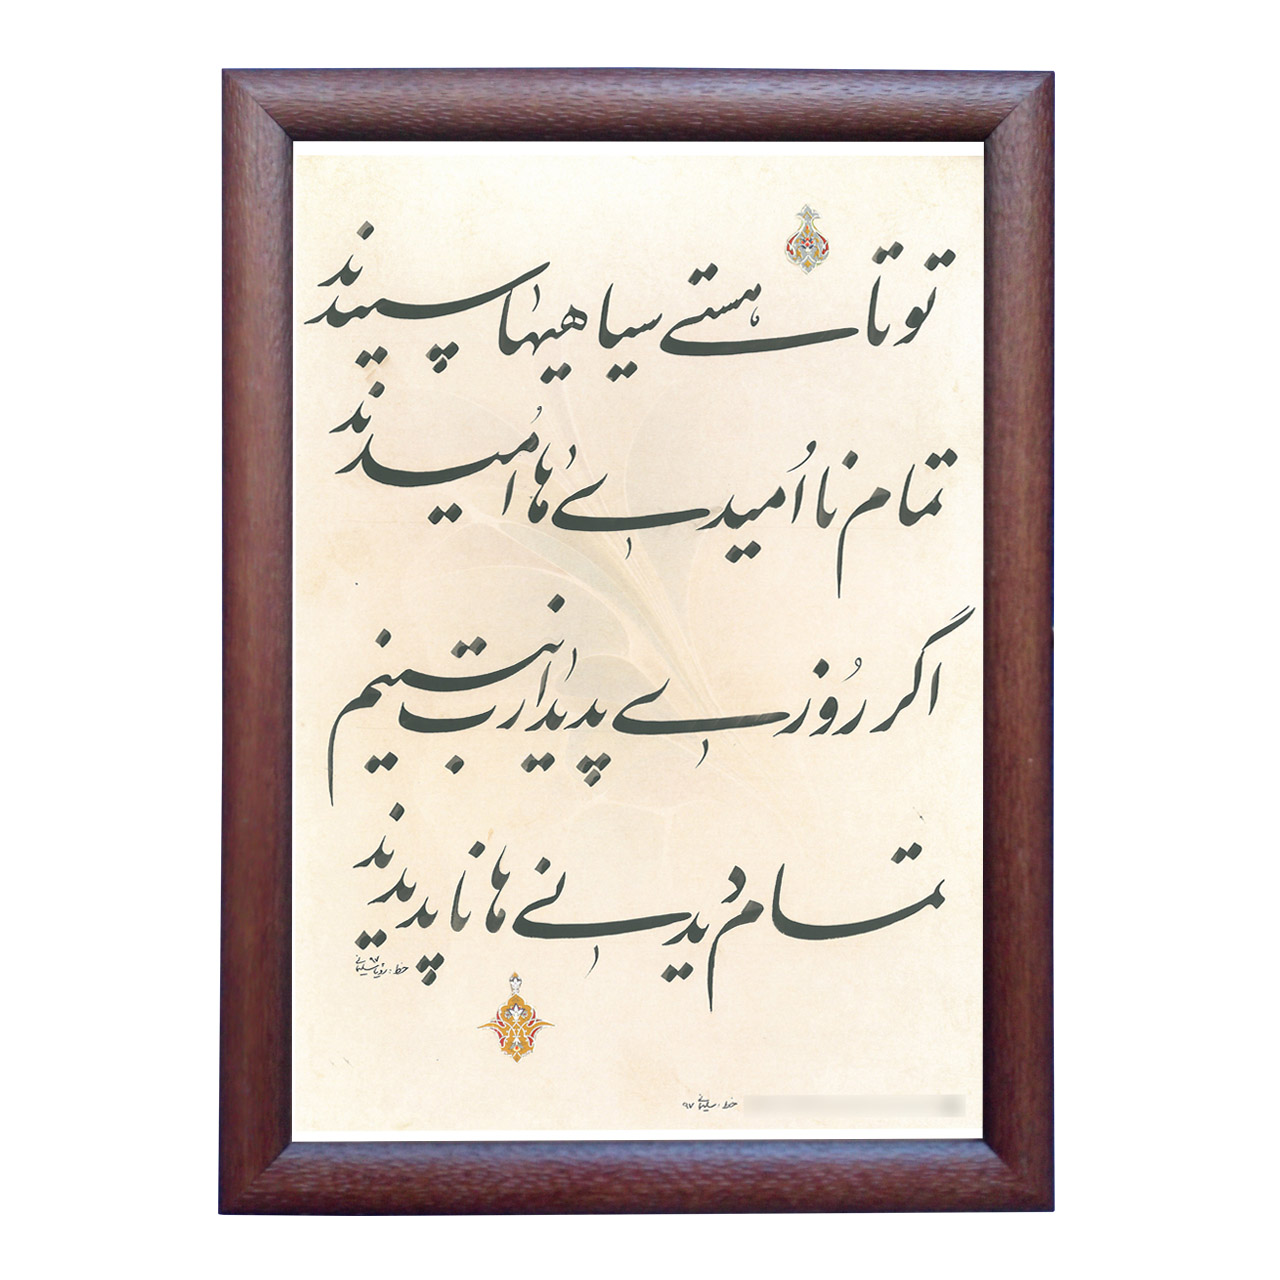 تو تا هستی سیاهیها سپیدند
تمام نا اُمیدی ها اُمیدند
اگر رُوزی پدیدارت نبینم
تمام دیدنی ها ناپدیدند
خط: رؤیا سلیمانی ۹۷
خط: سلیمانی ۹۷